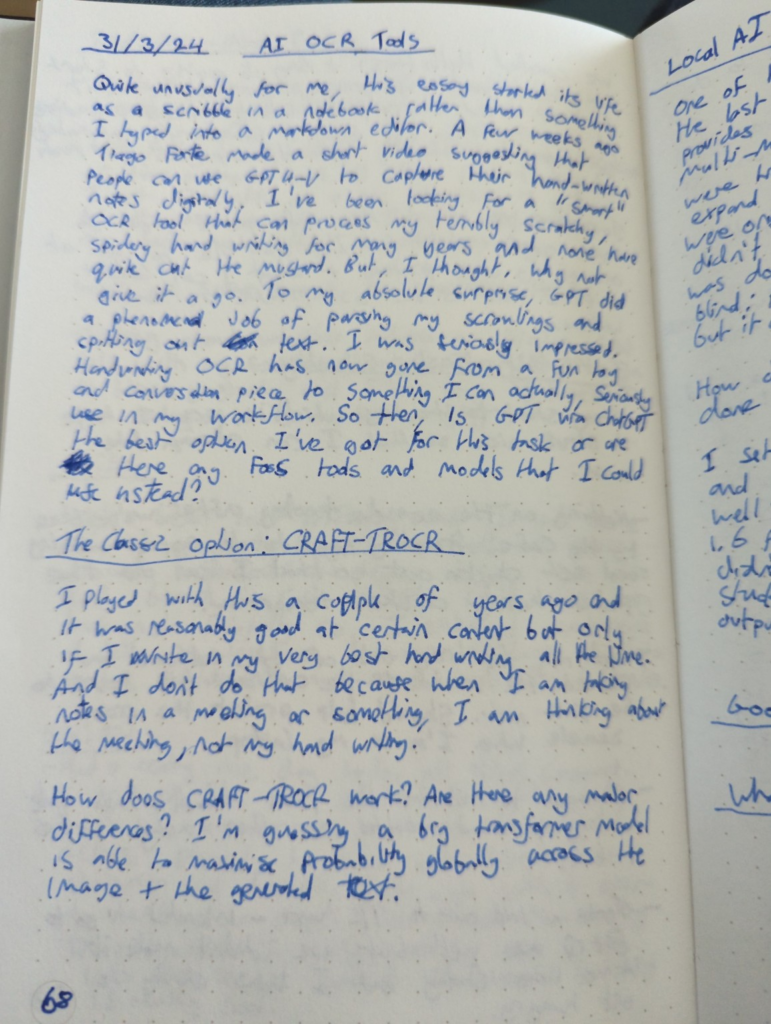 31/3/24 AI OCR Tools
Quite unusually for me, this essay started its life
as a scribble in a notebook rather than something
I typed into a markdown editor. A few weeks ago
Tiago Forte made a short video suggesting that
people can use GPT4-V to capture their hand-written
notes digitally. I've been looking for a "smart"
OCR tool that can process my terribly scratchy,
spidery hand writing for many years and none have
quite cut the mustard. But, I thought, why not
give it a go. To my absolute surprise, GPT did
a phenomenal job of parsing my scrawlings and
spitting out text. I was seriously impressed.
Handwriting OCR has now gone from a fun toy
and conversation piece to something I can actually, seriously
use in my workflow. So then, is GPT via ChatGPT
the best option I've got for this task or are
there any FOSS tools and models that I could
use instead?
The Classic option: CRAFT-TROCR
I played with this a couple of years ago and
it was reasonably good at certain content but only
if I write in my very best hand writing all the time.
And I don't do that because when I am taking
notes in a meeting or something, I am thinking about
the meeting, not my hand writing.
How does CRAFT-TROCR work? Are there any major
differences? I'm guessing a big transformer model
is able to maximise probability globally across the
image + the generated text.
68
Local AI
one of
the last
provides
multi-
were
expand
were
didn't
was
blind:
but it
How
done
I set
and
well
1.6
output